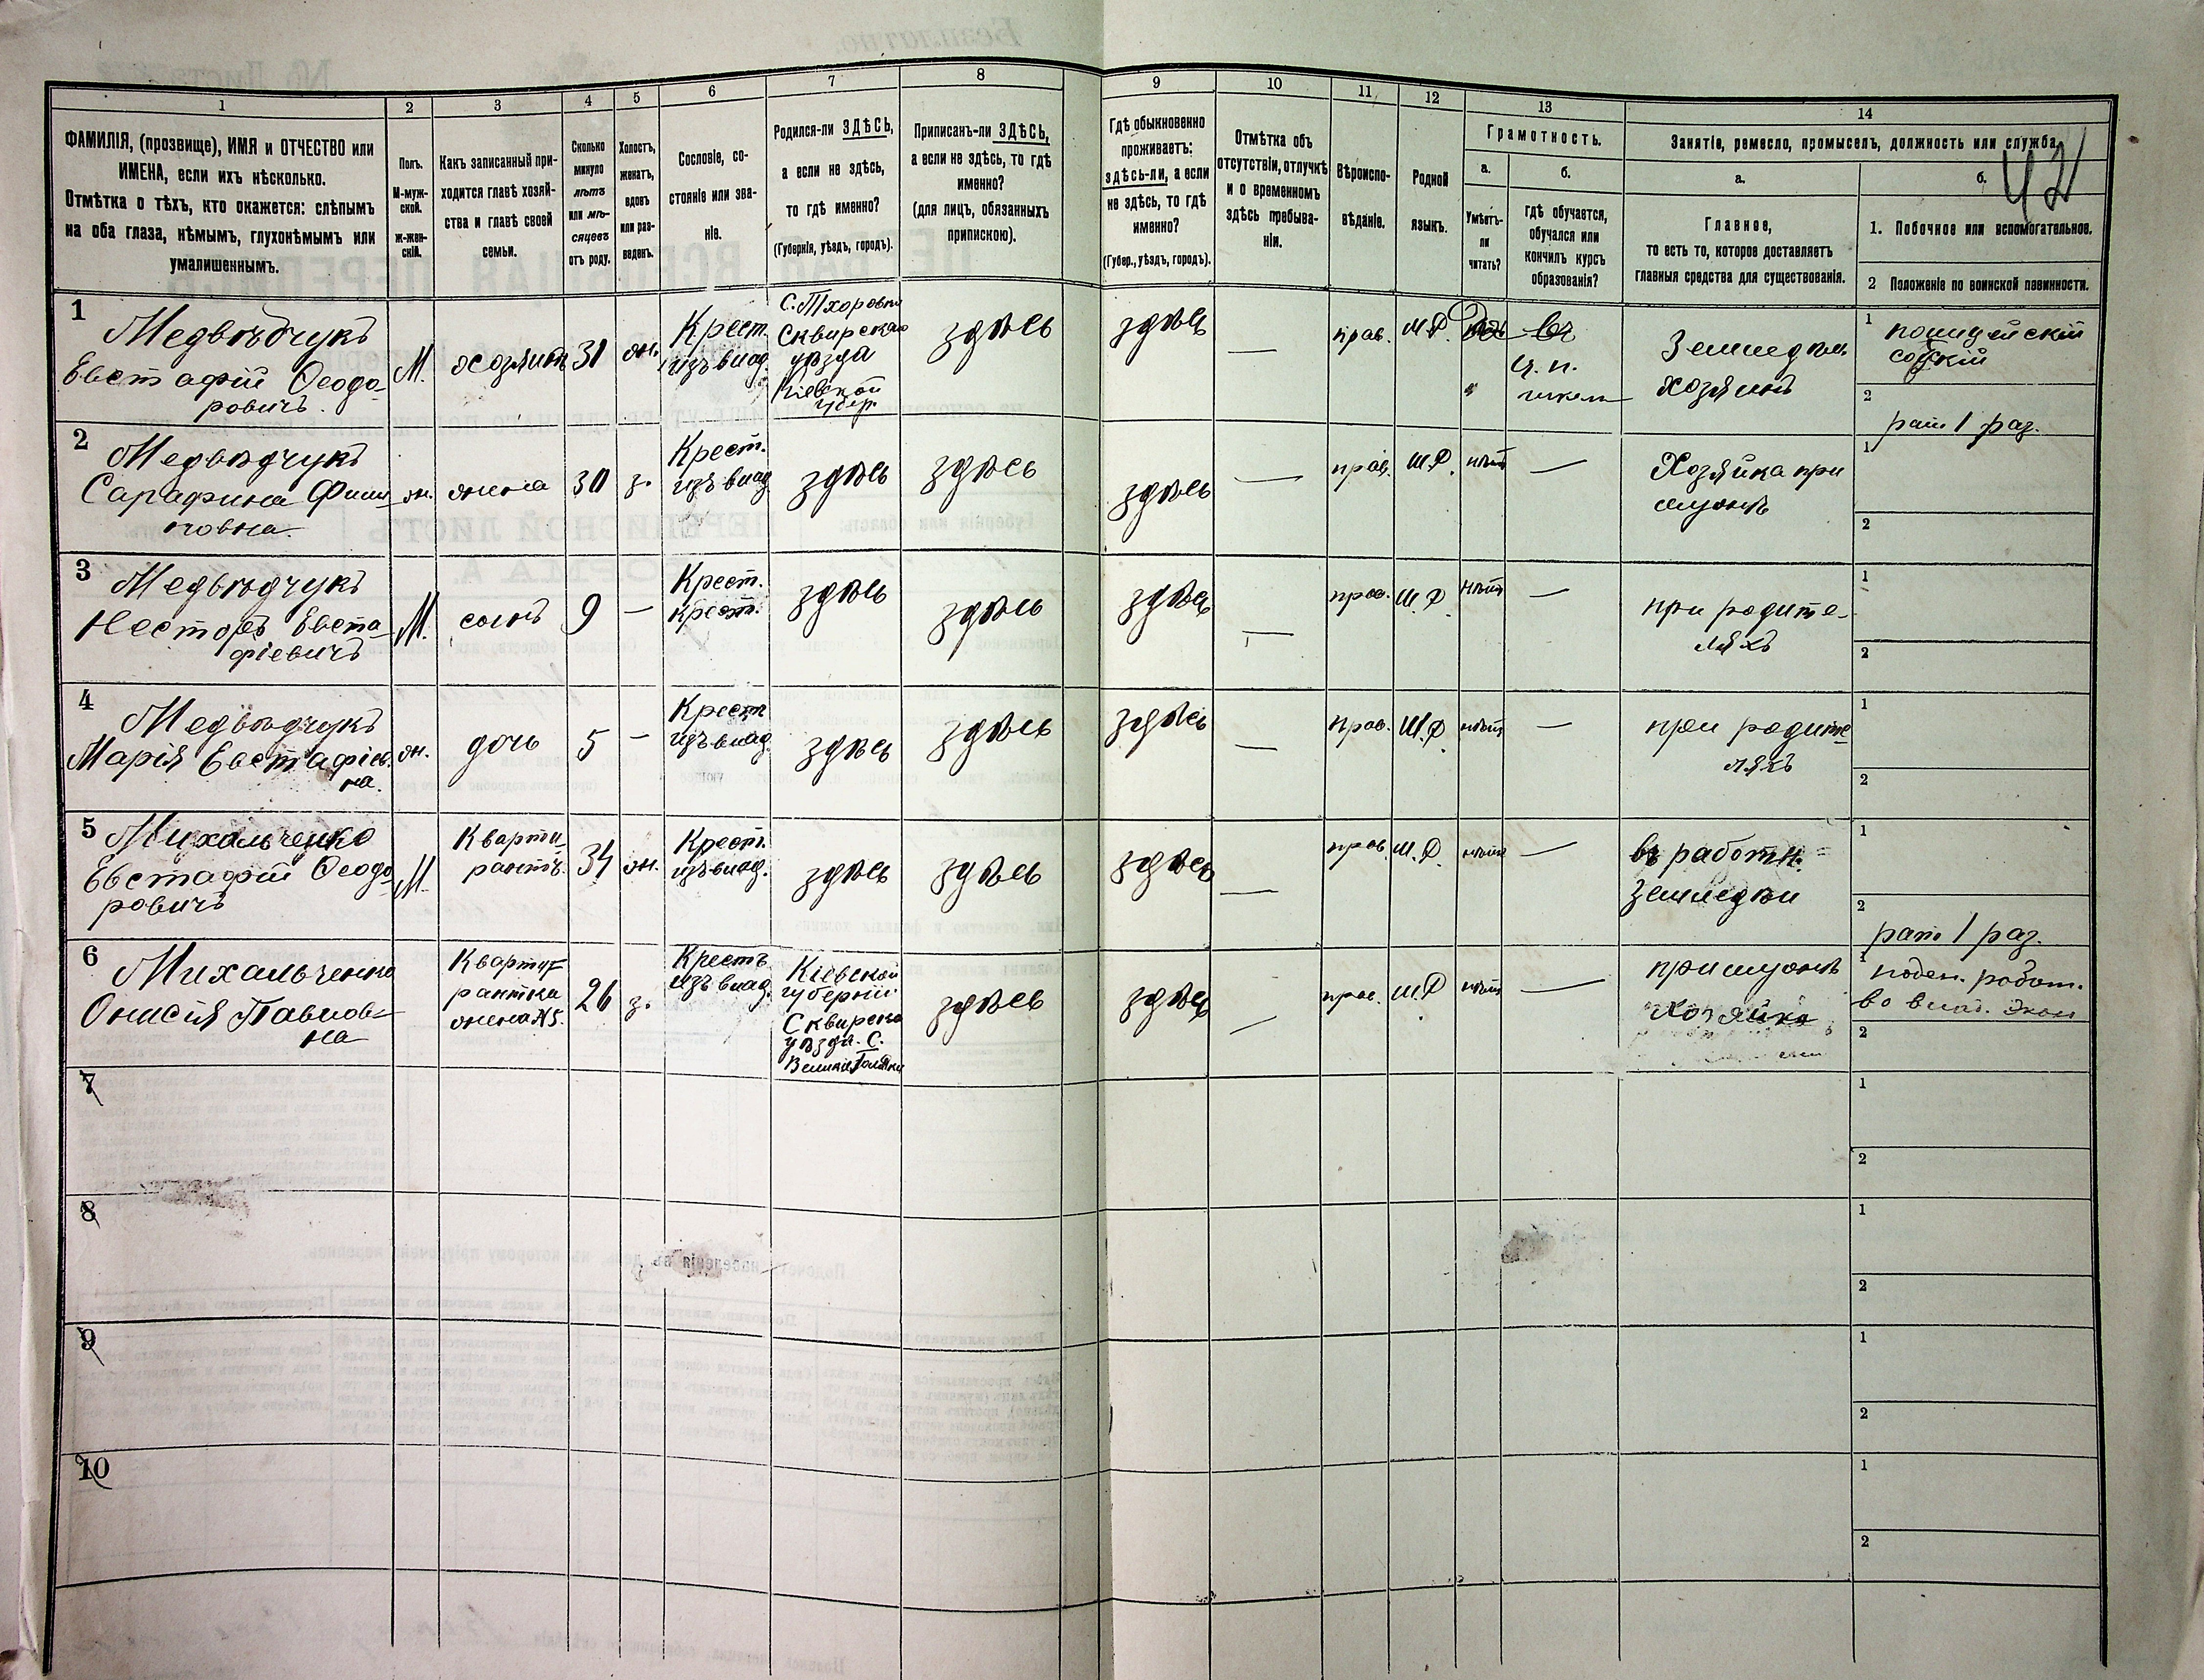 42
1
2
3
4
5
6
7
8
9
10
11
12
13
14
ФАМИЛІЯ, (прозвище), ИМЯ и ОТЧЕСТВО или
ИМЕНА, если ихъ нѣсколько.
Отмѣтка о тѣхъ, кто окажется: слѣпымъ
на оба глаза, нѣмымъ, глухонѣмымъ или
умалишеннымъ.
Полъ.
М-муж-
ской.
ж-жен-
скій.
Какъ записанный при-
ходится главѣ хозяй-
ства и главѣ своей
семьи.
Сколько
минуло
лѣтъ
или мѣ-
сяцевъ
отъ роду.
Холостъ,
женатъ,
вдовъ
или раз-
веденъ.
Сословіе, со-
стояніе или зва-
ніе.
Родился-ли ЗДѢСЬ,
а если не здѣсь,
то гдѣ именно?
(Губернія, уѣздъ, городъ).
Приписанъ-ли ЗДѢСЬ,
а если не здѣсь, то гдѣ
именно?
(для лицъ, обязанныхъ
припискою).
Гдѣ обыкновенно
проживаетъ:
здѣсь-ли, а если
не здѣсь, то гдѣ
именно?
(Губер., уѣздъ, городъ).
Отмѣтка объ
отсутствіи, отлучкѣ
и о временномъ
здѣсь пребыва-
ніи.
Вѣроиспо-
вѣданіе.
Родной
языкъ.
Грамотность.
а.
Умѣетъ-
ли
читать?
б.
гдѣ обучается,
обучался или
кончилъ курсъ
образованія?
Занятіе, ремесло, промыселъ, должность или служба.
а.
Главное,
то есть то, которое доставляетъ
главныя средства для существованія.
б.
1. Побочное или вспомогательное.
2 Положеніе по воинской повинности.
1
Медвѣдчукъ
Евстафій Ѳеодо-
ровичъ.
М.
хозяинъ
31
жн.
Крест.
изъ влад.
С. Тхоровки
Сквирскаго
уѣзда
Кіевской
губер.
здѣсь
здѣсь
—
прав.
М.Р.
въ
ц. п.
школѣ
Земледѣл.
хозяинъ
1
полицейскій
сотскій
2
рат. 1 раз.
2
Медвѣдчукъ
Сарафина Фили-
повна.
жн.
жена
30
з.
Крест.
изъ влад.
здѣсь
здѣсь
здѣсь
—
прав.
М.Р.
нѣтъ
—
Хозяйка при
мужѣ
1
2
3
Медвѣдчукъ
Несторъ Евста-
фіевичъ
М.
сынъ
9
—
Крест.
здѣсь
здѣсь
здѣсь
—
прав.
М.Р.
нѣтъ
—
при родите-
ляхъ
1
2
4
Медвѣдчукъ
Марія Евстафіев-
на.
жн.
дочь
5
-
Крест
изъ влад.
здѣсь
здѣсь
здѣсь
—
прав.
М.Р
нѣтъ
—
при родите-
ляхъ
1
2
5
Михальченко
Евстафій Ѳеодо
ровичъ
М.
Кварти-
рантъ.
34
жн.
Крест.
изъ влад.
здѣсь
здѣсь
здѣсь
—
прав.
М.Р.
нѣтъ
—
въ работн.
земледѣл
1
2
рат. 1 раз.
6
Михальченко
Онисія Павлов-
на
Кварти-
рантка
жена №5.
26
з.
Крестъ
изъ влад.
Кіевской
губерніи
Сквирска
уѣзда. С.
здѣсь
здѣсь
—
прав.
М.Р
нѣтъ
—
при мужѣ
Хозяйка
1
поден. работ.
во влад. Экон
2
7
1
2
8
1
2
9
1
2
10
1
2